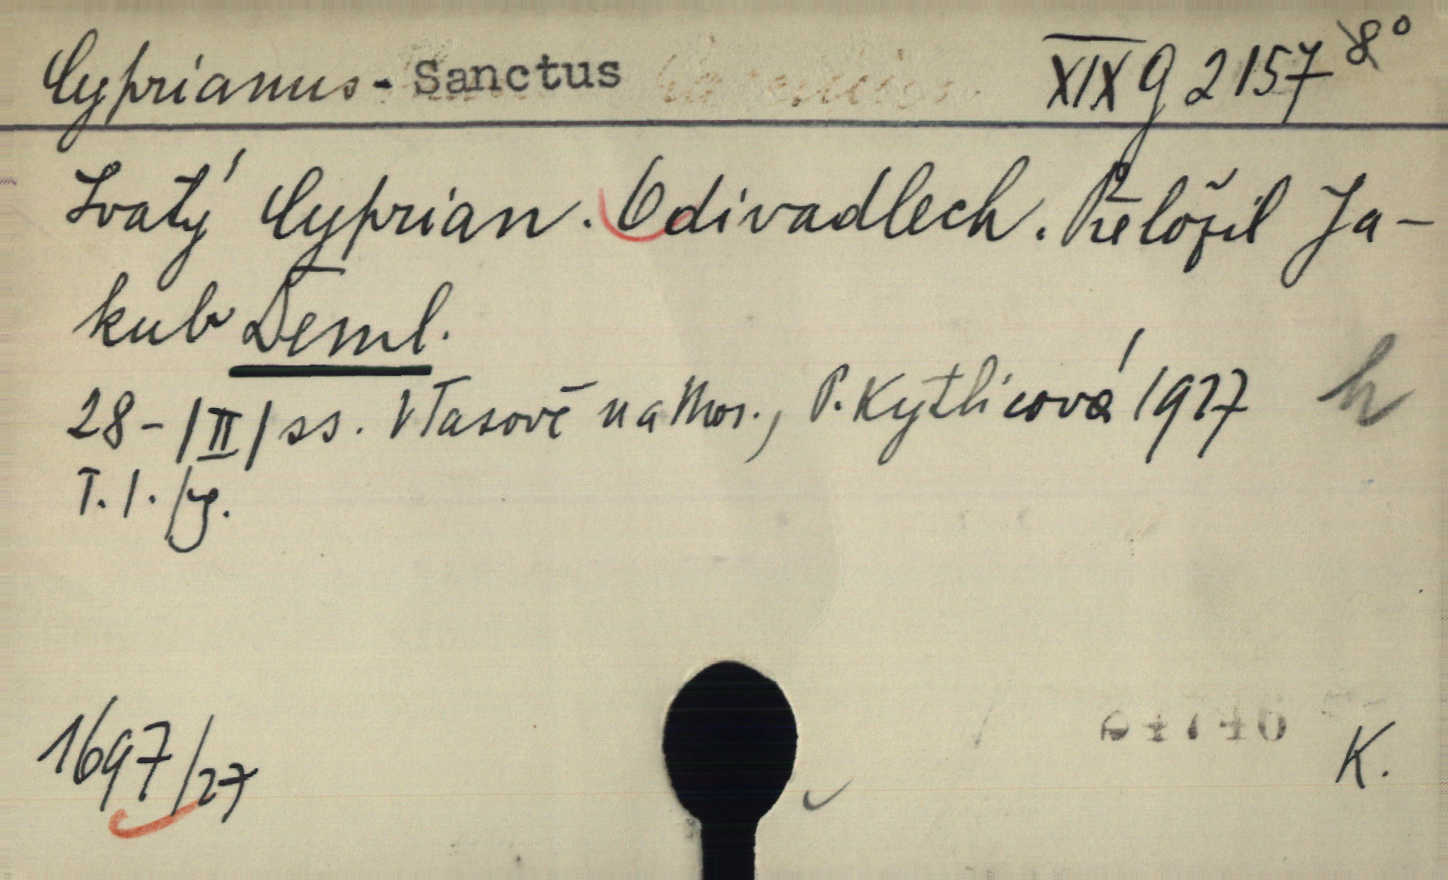 Cyprianus - Sanctus XIX G 2157 8°
Svatý Cyprian. O divadlech. Přeložil Ja-
kub Deml.
28-/II/ ss. V Tasově na Mor., P. Kytlicová 1927
T. l. /y.
h
1697/27
K.